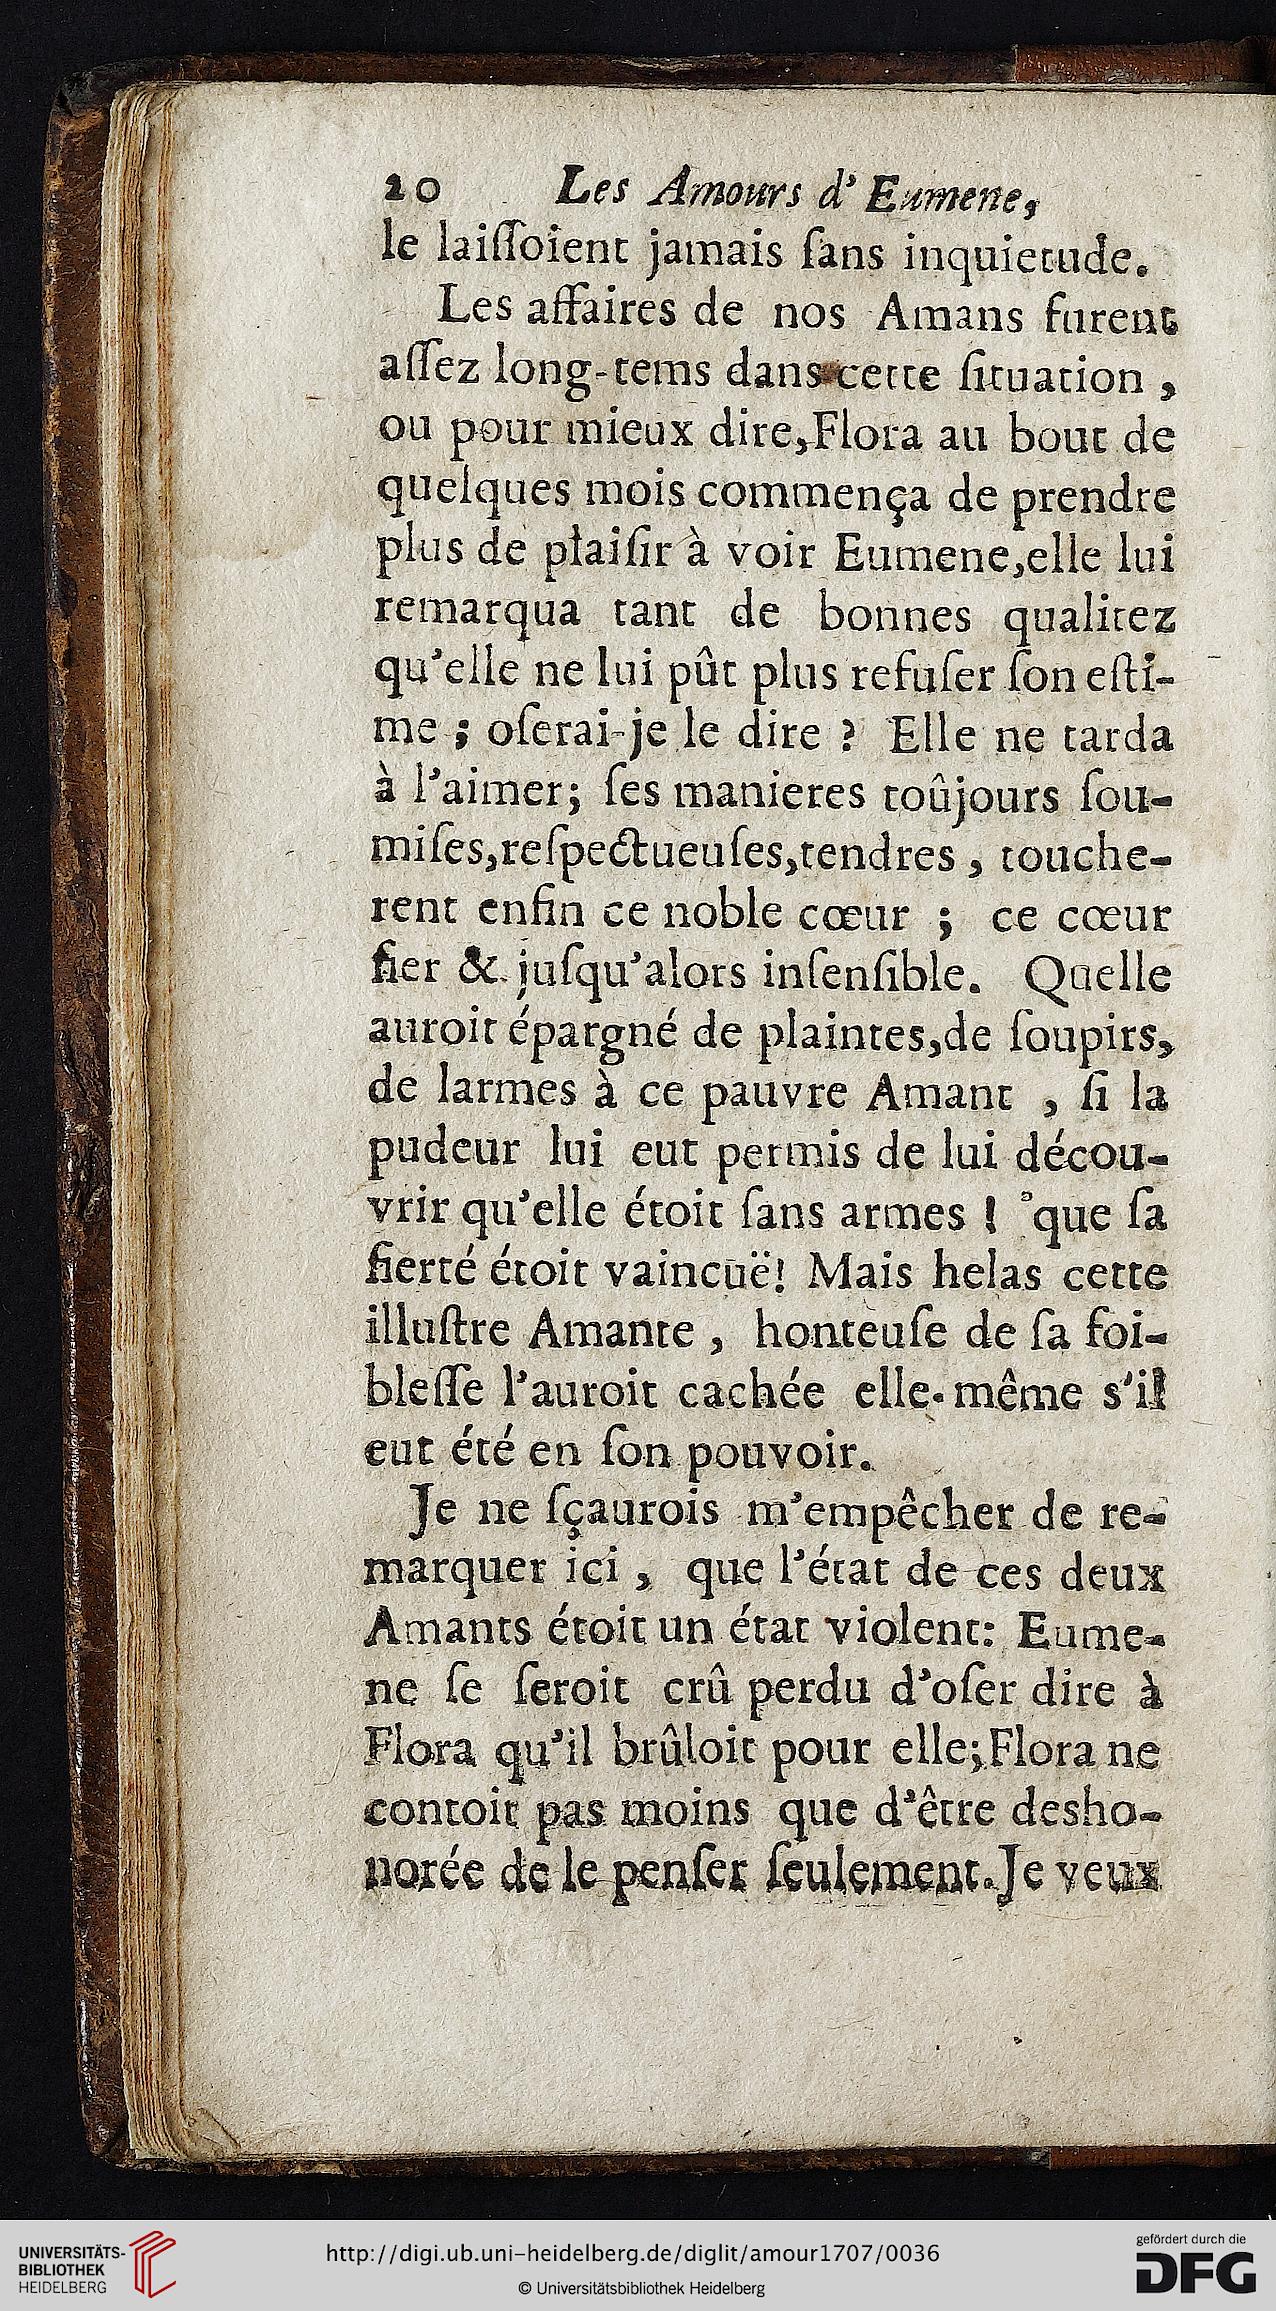 20 Les Amours d'Eumene,
le laiſſoient jamais ſans inquietude.
Les affaires de nos Amans furent
aſſez long-tems dans cette ſituation ,
ou pour mieux dire,Flora au bout de
quelques mois commença de prendre
plus de plaiſir à voir Eumene,elle lui
remarqua tant de bonnes qualitez
qu'elle ne lui pût plus refuſer ſon eſti-
me ; oſerai-je le dire ? Elle ne tarda
à l'aimer; ſes manieres toûjours ſou-
miſes,reſpectueuſes,tendres , touche-
rent enfin ce noble cœur ; ce cœur
fier & juſqu'alors inſenſible. Quelle
auroit épargné de plaintes,de ſoupirs,
de larmes à ce pauvre Amant , ſi la
pudeur lui eut permis de lui décou-
vrir qu'elle étoit ſans armes ! que ſa
fierté étoit vaincuë! Mais helas cette
illuſtre Amante , honteuſe de ſa foi-
bleſſe l'auroit cachée elle-même s'il
eut été en ſon pouvoir.
Je ne ſçaurois m'empêcher de re-
marquer ici , que l'état de ces deux
Amants étoit un état violent: Eume-
ne ſe ſeroit crû perdu d'oſer dire à
Flora qu'il brûloit pour elle;Flora ne
contoit pas moins que d'être desho-
norée de le penſer ſeulement.Je veux
UNIVERSITÄTS-
BIBLIOTHEK
HEIDELBERG
http://digi.ub.uni-heidelberg.de/diglit/amour1707/0036
© Universitätsbibliothek Heidelberg
gefördert durch die
DFG